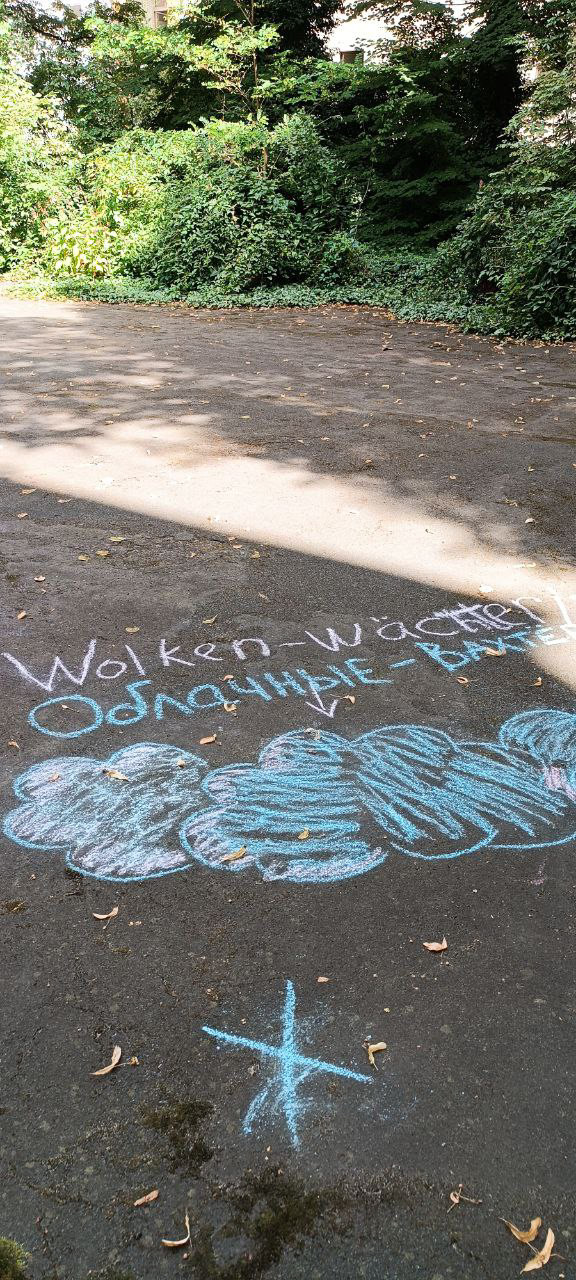 Wolken-Wächter
Облачные-Вахтёр